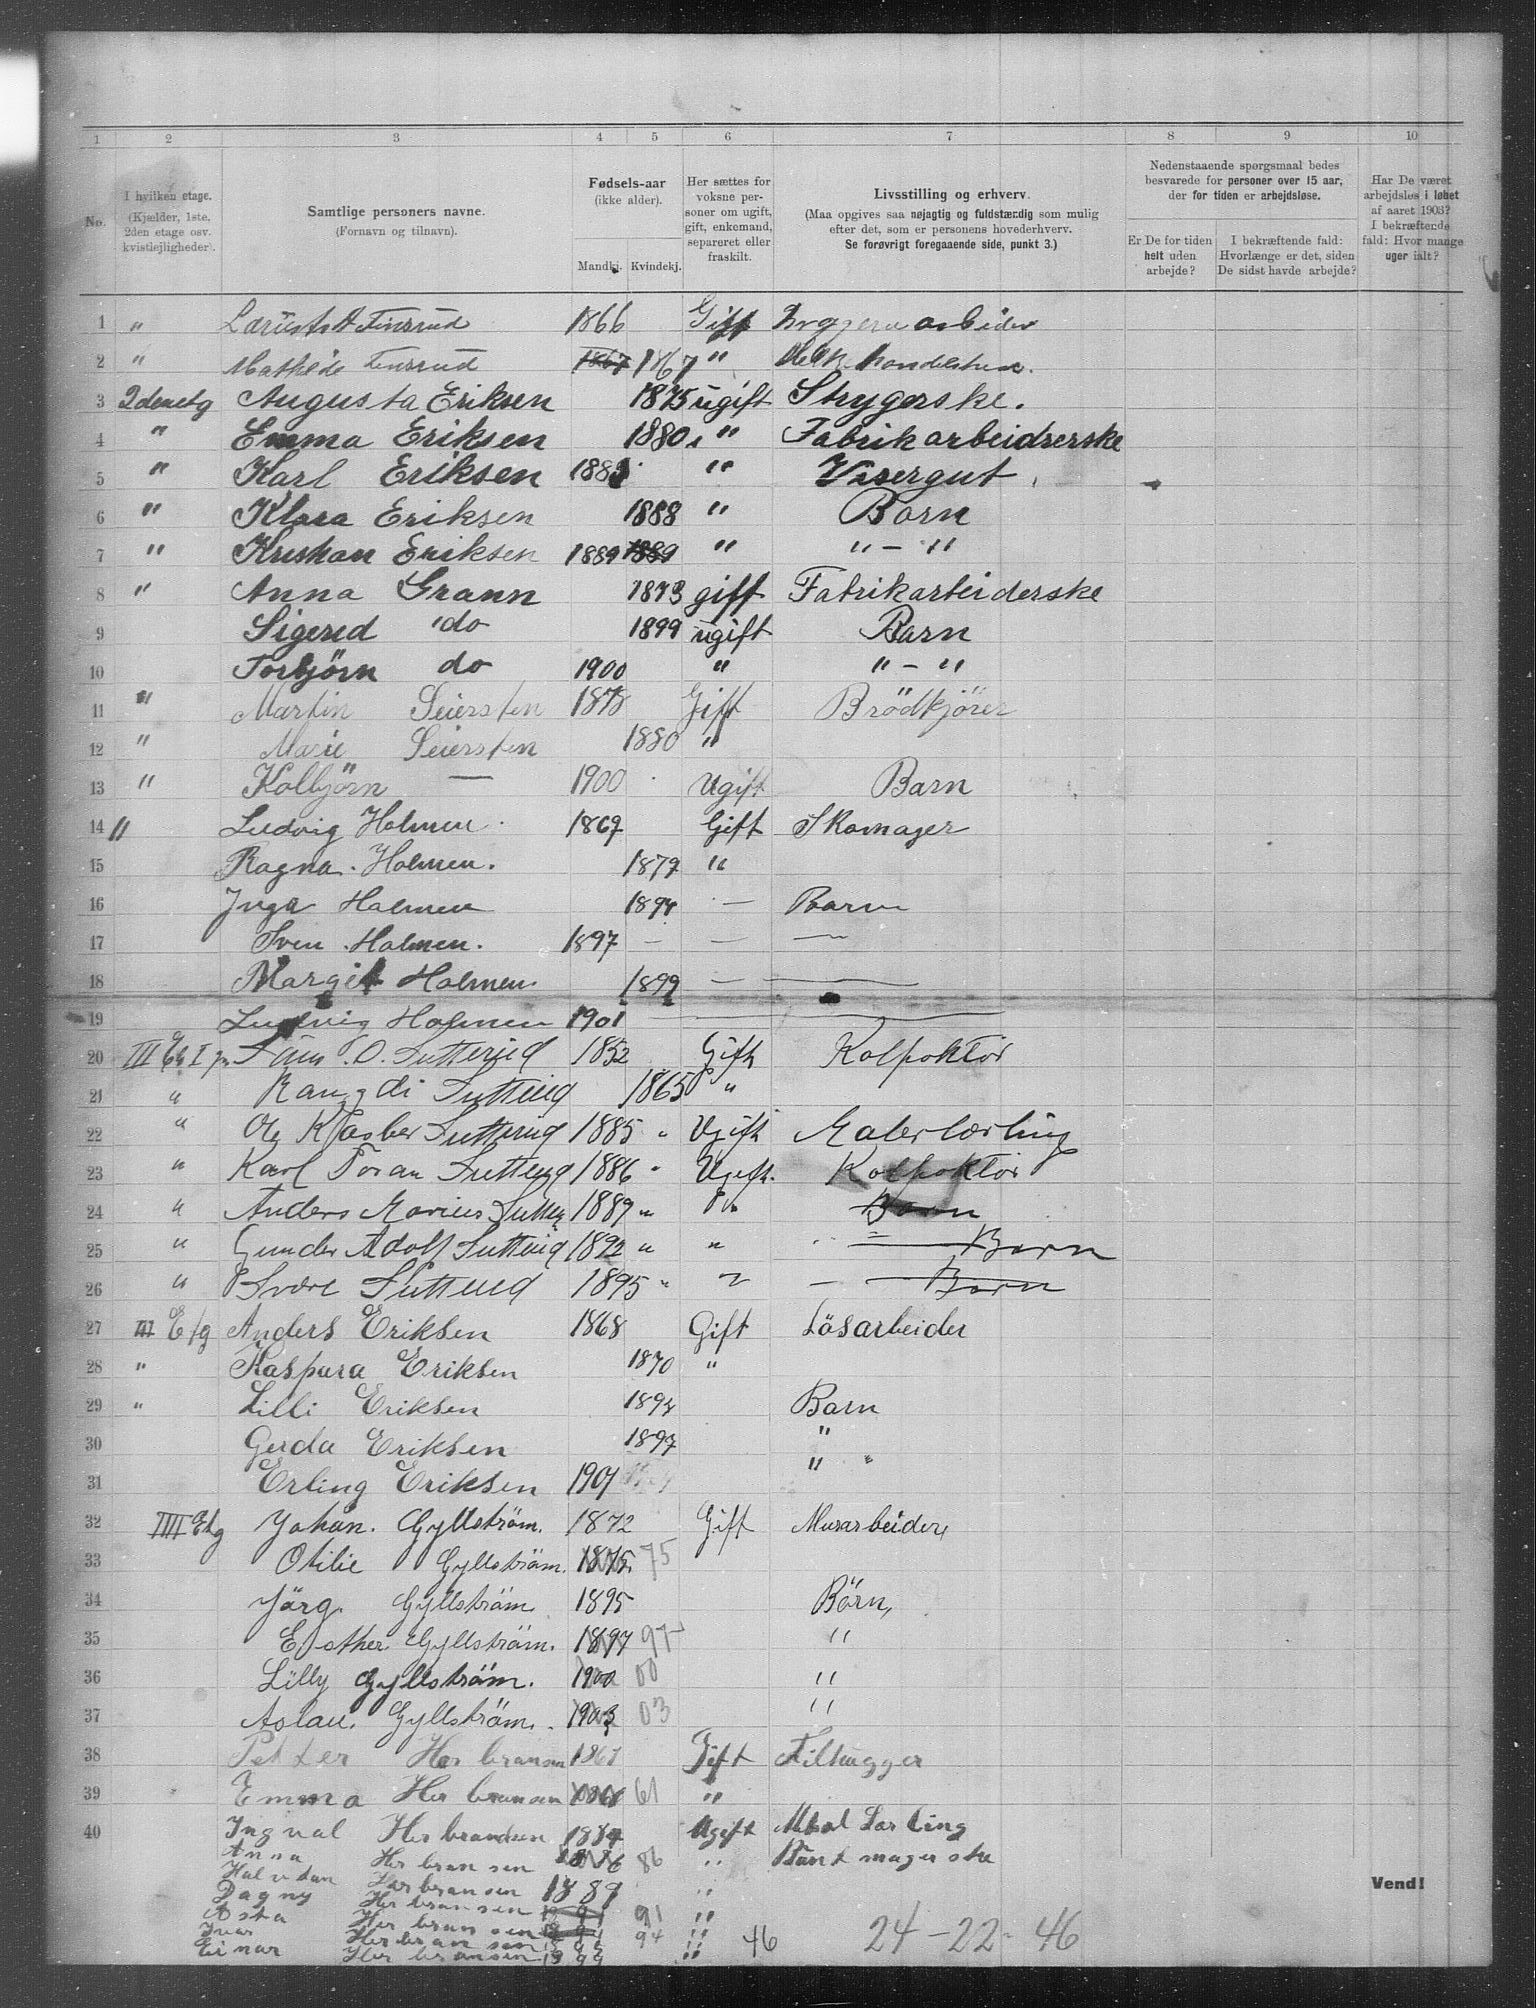 1 2 3 4 5 6 7 8 9 10
No.
I hvilken etage.
(Kjælder, 1ste,
2den etage osv.
kvistlejligheder).
Samtlige personers navne.
(Fornavn og tilnavn).
Fødsels-aar
(ikke alder).
Mandkj. Kvindekj.
Her sættes for
voksne per-
soner om ugift,
gift, enkemand,
separeret eller
fraskilt.
Livsstilling og erhverv.
(Maa opgives saa nøjagtig og fuldstændig som mulig
efter det, som er personens hovederhverv.
Se forøvrigt foregaaende side, punkt 3.)
Nedenstaaende spørgsmaal bedes
besvarede for personer over 15 aar,
der for tiden er arbejdsløse.
Er De for tiden
helt uden
arbejde?
I bekræftende fald:
Hvorlænge er det, siden
De sidst havde arbejde?
Har De været
arbejdsløs i løbet
af aaret 1903?
I bekræftende
fald: Hvor mange
uger ialt?
1 " Finsrud 1866 Gift
2 " Mathilde Finsrud 1867 1867 "
3 2denetg Augusta Eriksen 1875 ugift Strygerske.
4 " Emma Eriksen 1880 " Fabrikarbeidserske
5 " Karl Eriksen " Visergut
6 " Klara Eriksen 1888 " Barn
7 " Kristian Eriksen 1889 1889 " " - "
8 " Anna Grann 1873 gift Fabrikarbeiderske
9 Sigerid do 1899 ugift Barn
10 Torbjörn do 1900 " " - "
11 " Martin Seiersten 1878 Gift Brödkjörer
12 " Marie Seiersten 1880 "
13 " Kolbjörn — 1900 Ugift Barn
14 " Ludvig Holmen 1869 Gift Skomager
15 Ragna Holmen. 1872 "
16 Inga Holmen 1894 — Barn
17 Sven Holmen. 1897 — — —
18 Margit Holmen. 1899 — —
19 Ludvig Holmen 1901 —
20 III O. Sutterud 1852 Gift Kolpoktör
21 " Rangdi Sutterud 1865 "
22 " Ole Sutterud 1885 " Ugift Malerlærling
23 " Karl Johan Sutterud 1886 " Ugift. Kolpoktör
24 " Anders Marius 1889 " " Barn
25 " Gunder Adolf Sutterud 1892 " " Barn
26 " Sutterud 1895 " " — Barn
27 III Etg Anders Eriksen 1868 Gift Lösarbeider
28 " Kaspara Eriksen 1870 "
29 " Lilli Eriksen 1894 Barn
30 Gerda Eriksen 1897 "
31 Erling Eriksen 1901 " "
32 IIII Etg Johan. Gyllström. 1872 Gift Murarbeider,
33 Otilie Gyllström. 1875 75
34 Gyllström 1895 Börn,
35 Esther Gyllström. 1897 97 "
36 Lilly Gyllström. 1900 00 "
37 Gyllström. 1903 03 "
38 Petter Herbransen 1861 Gift Filhugger
39 Emma Herbransen 1861 61 "
40 Ingval Herbrandsen 1884 Ugift Metal Lærling
Anna Herbransen 1886 86 " Buntmagerske
Halvdan Herbransen 1889 "
Dagny Herbransen 91 "
Asta Herbransen 94 "
Ivar Herbransen "
Einar Herbransen 1899 " 46
24-22-46
Vend!